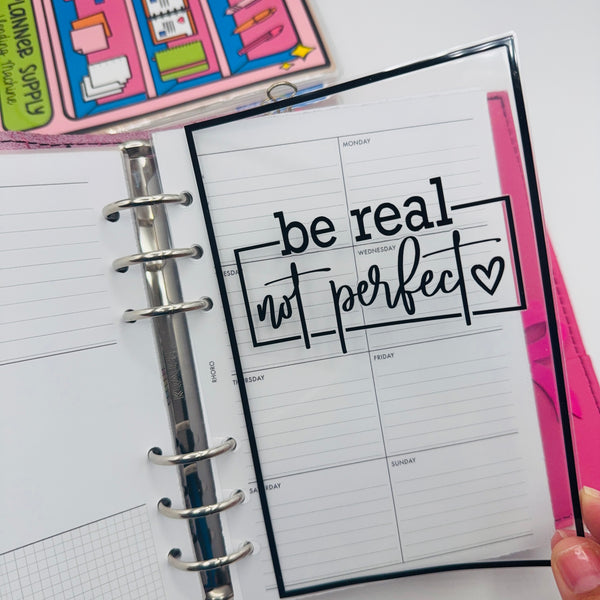 PLANNER SUPPLY
Vending Machine
MONDAY
be real
TUESDAY
WEDNESDAY
not perfect
THURSDAY
FRIDAY
SATURDAY
SUNDAY